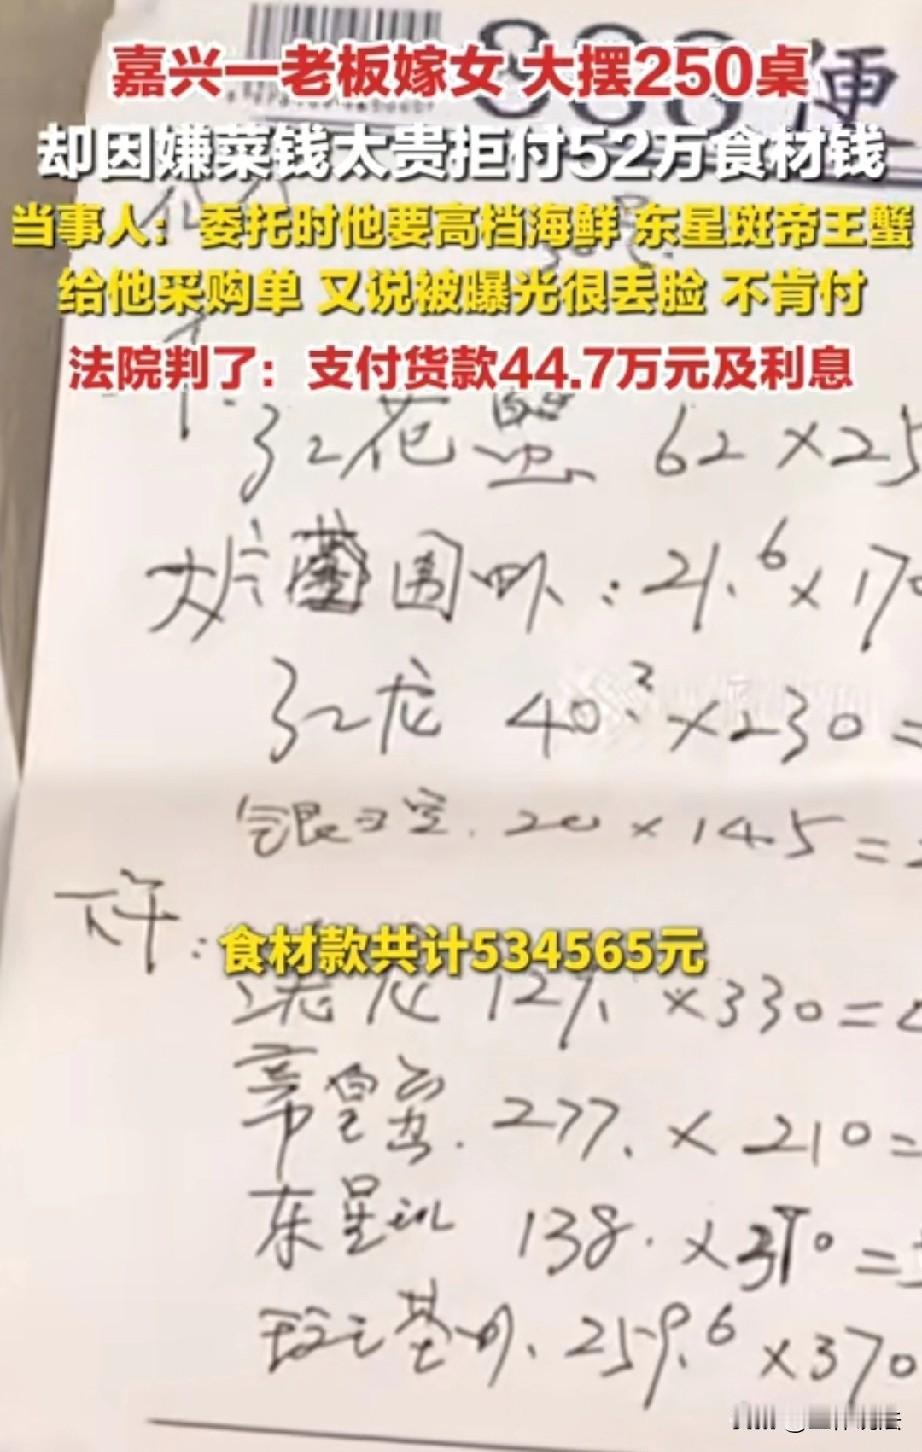 888 便
嘉兴一老板嫁女 大摆250桌
却因嫌菜钱太贵拒付52万食材钱
当事人：委托时他要高档海鲜 东星斑帝王蟹
给他采购单 又说被曝光很丢脸 不肯付
法院判了：支付货款44.7万元及利息
红花蟹 62×25
围虾：21.6×170
红龙 40.3×230=
20×14.5=
下午：
食材款共计534565元
龙 127.×330=
帝皇蟹.277.×210=
东星斑 138.×
259.6×370